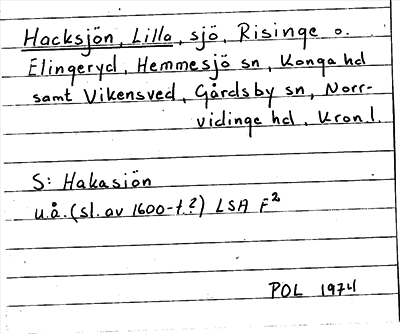 Hacksjön, Lilla, sjö, Risinge o.
Elingeryd, Hemmesjö sn, Konga hd
samt Vikensved, Gårdsby sn, Norr-
vidinge hd, Kron.l.
S: Hakasiön
u.å. (sl. av 1600-t?) LSA F²
POL 1974